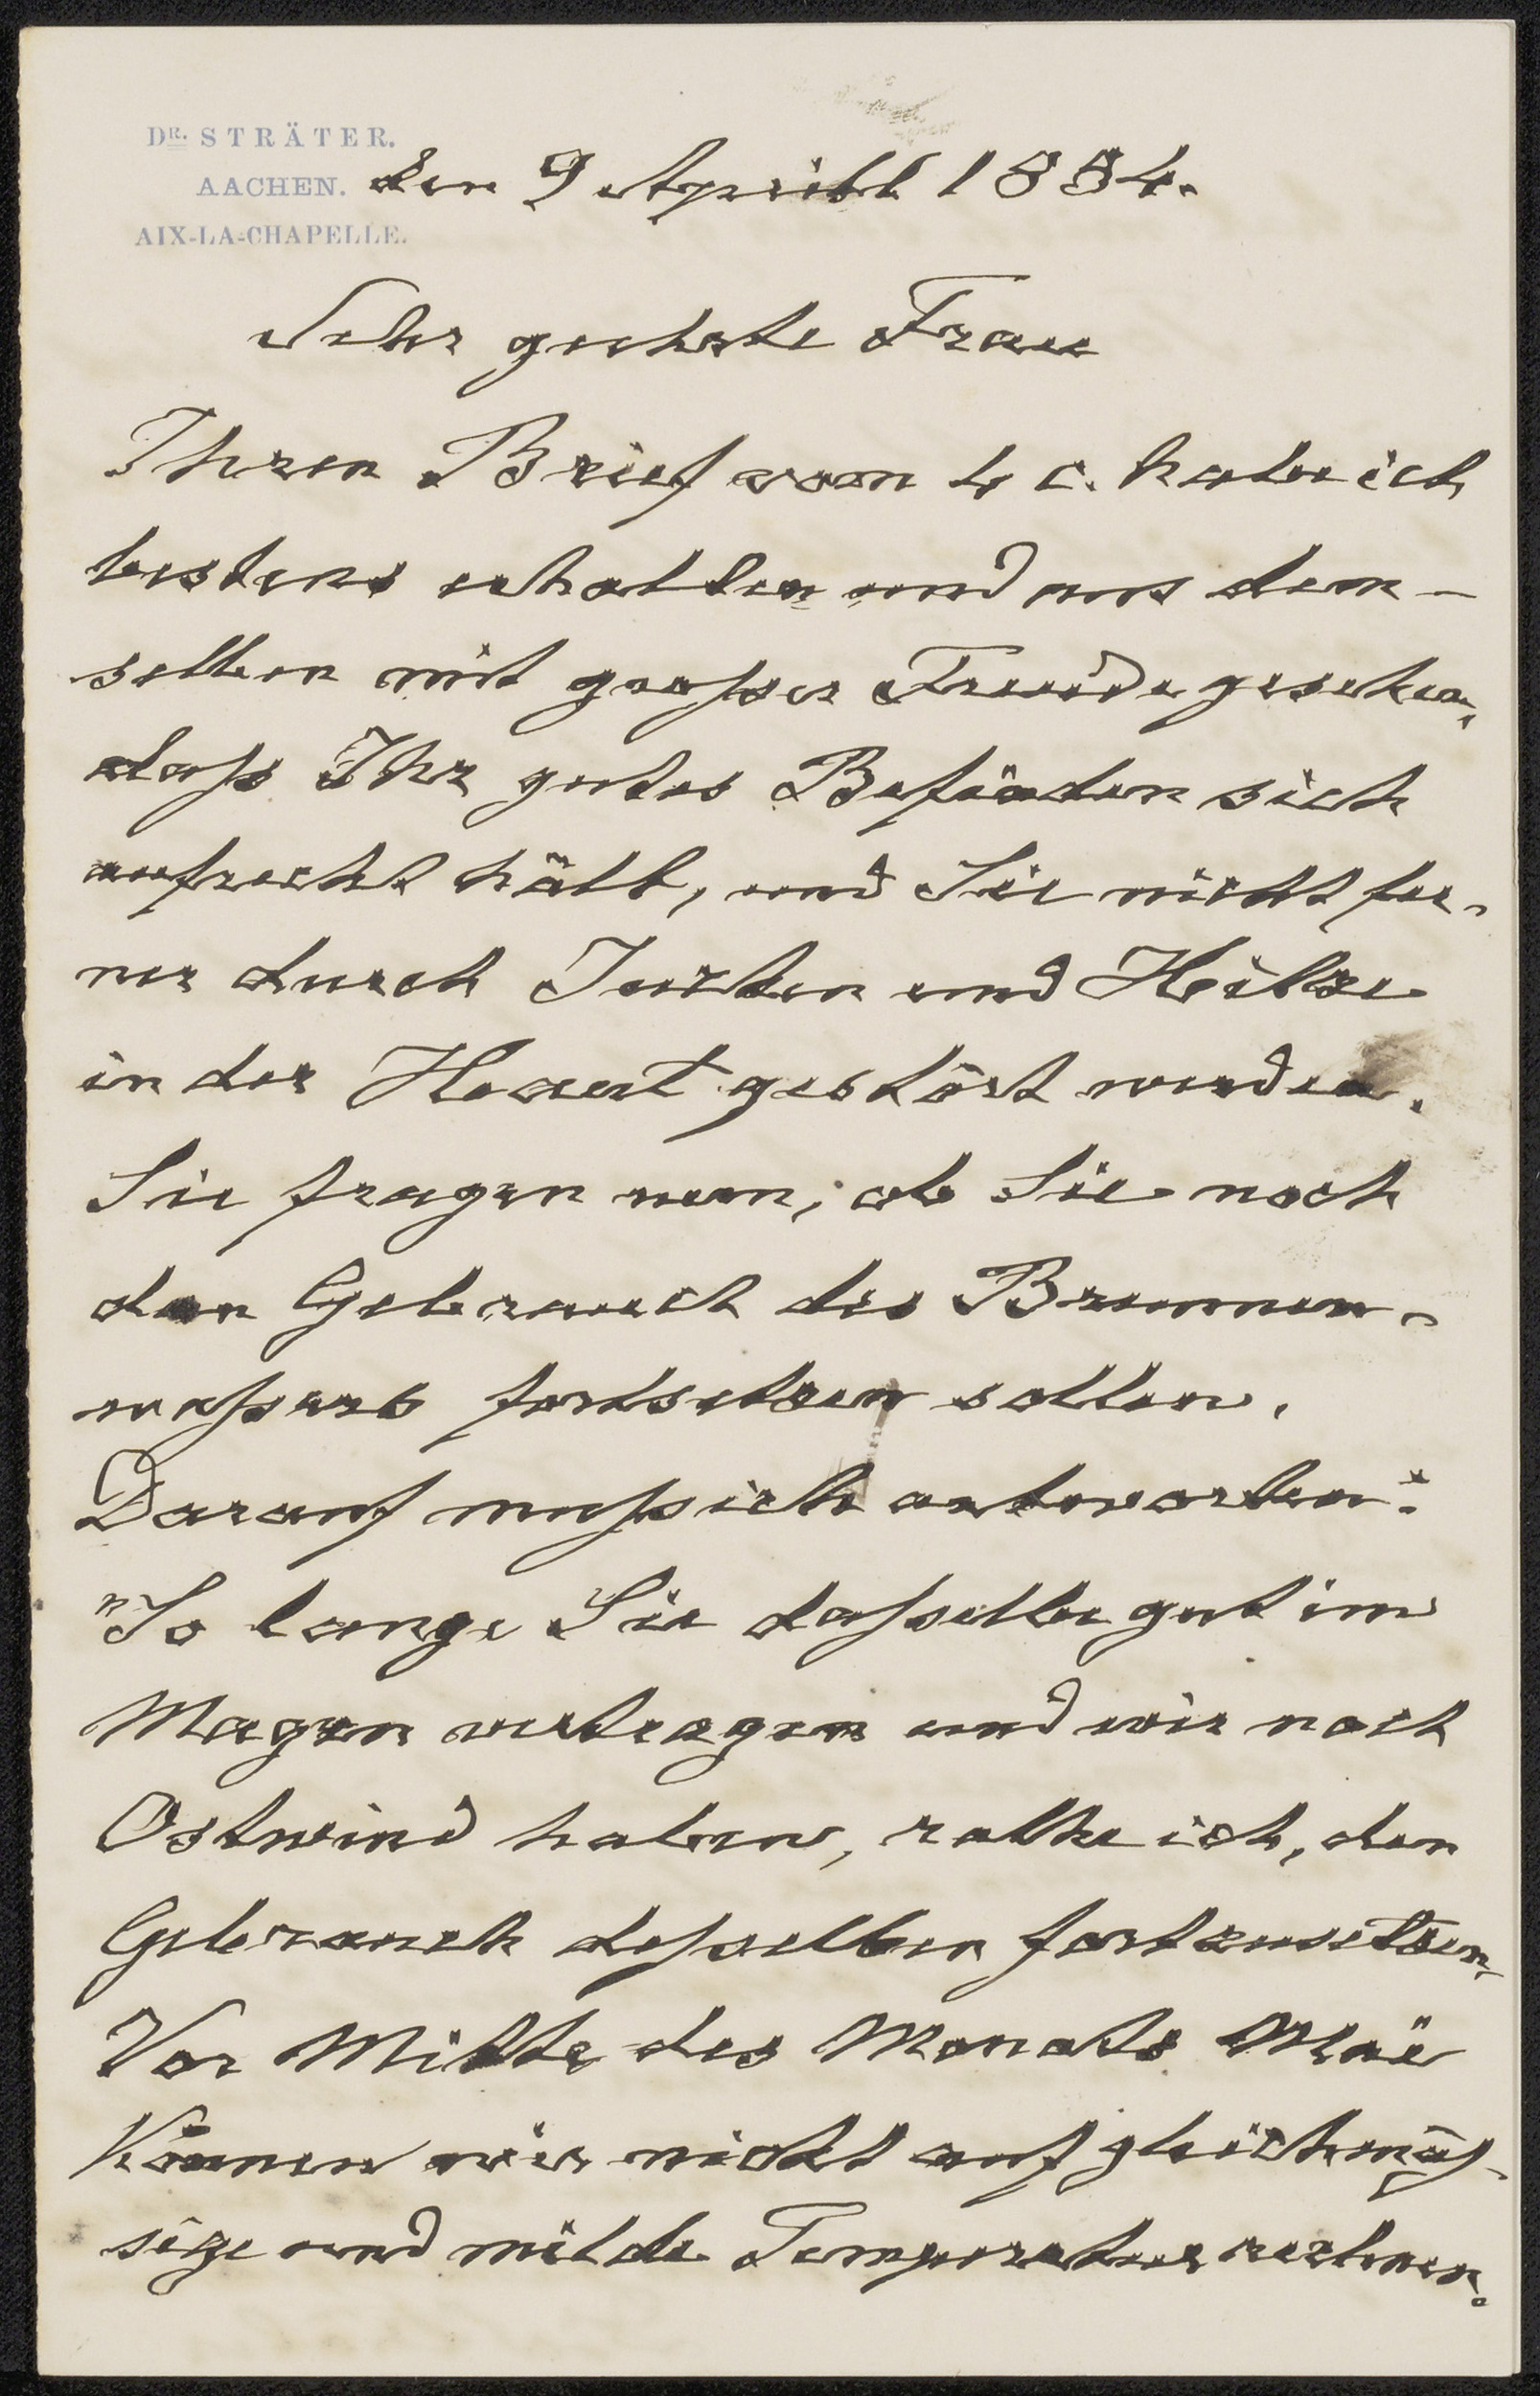 DR. STRÄTER.
AACHEN. den 9 Aprill 1884.
AIX-LA-CHAPELLE.
Sehr geehrte Frau
Ihren Brief vom 4 c. habe ich
bestens erhalten und aus dem-
selben mit großer Freude gesehen,
daß Ihr gutes Befinden sich
aufrecht hält, und Sie nicht fer-
ner durch Jucken und Hitze
in der Haut gestört werden.
Sie fragen nun, ob Sie noch
den Gebrauch des Brunnen-
waßers fortsetzen sollen.
Darauf muß ich antworten:
"So lange Sie daßelbe gut im
Magen vertragen und wir noch
Ostwind haben, rathe ich, den
Gebrauch deßelben fortzusetzen.
Vor Mitte des Monats Mai
können wir nicht auf gleichmäs-
sige und milde Temperatur rechnen.